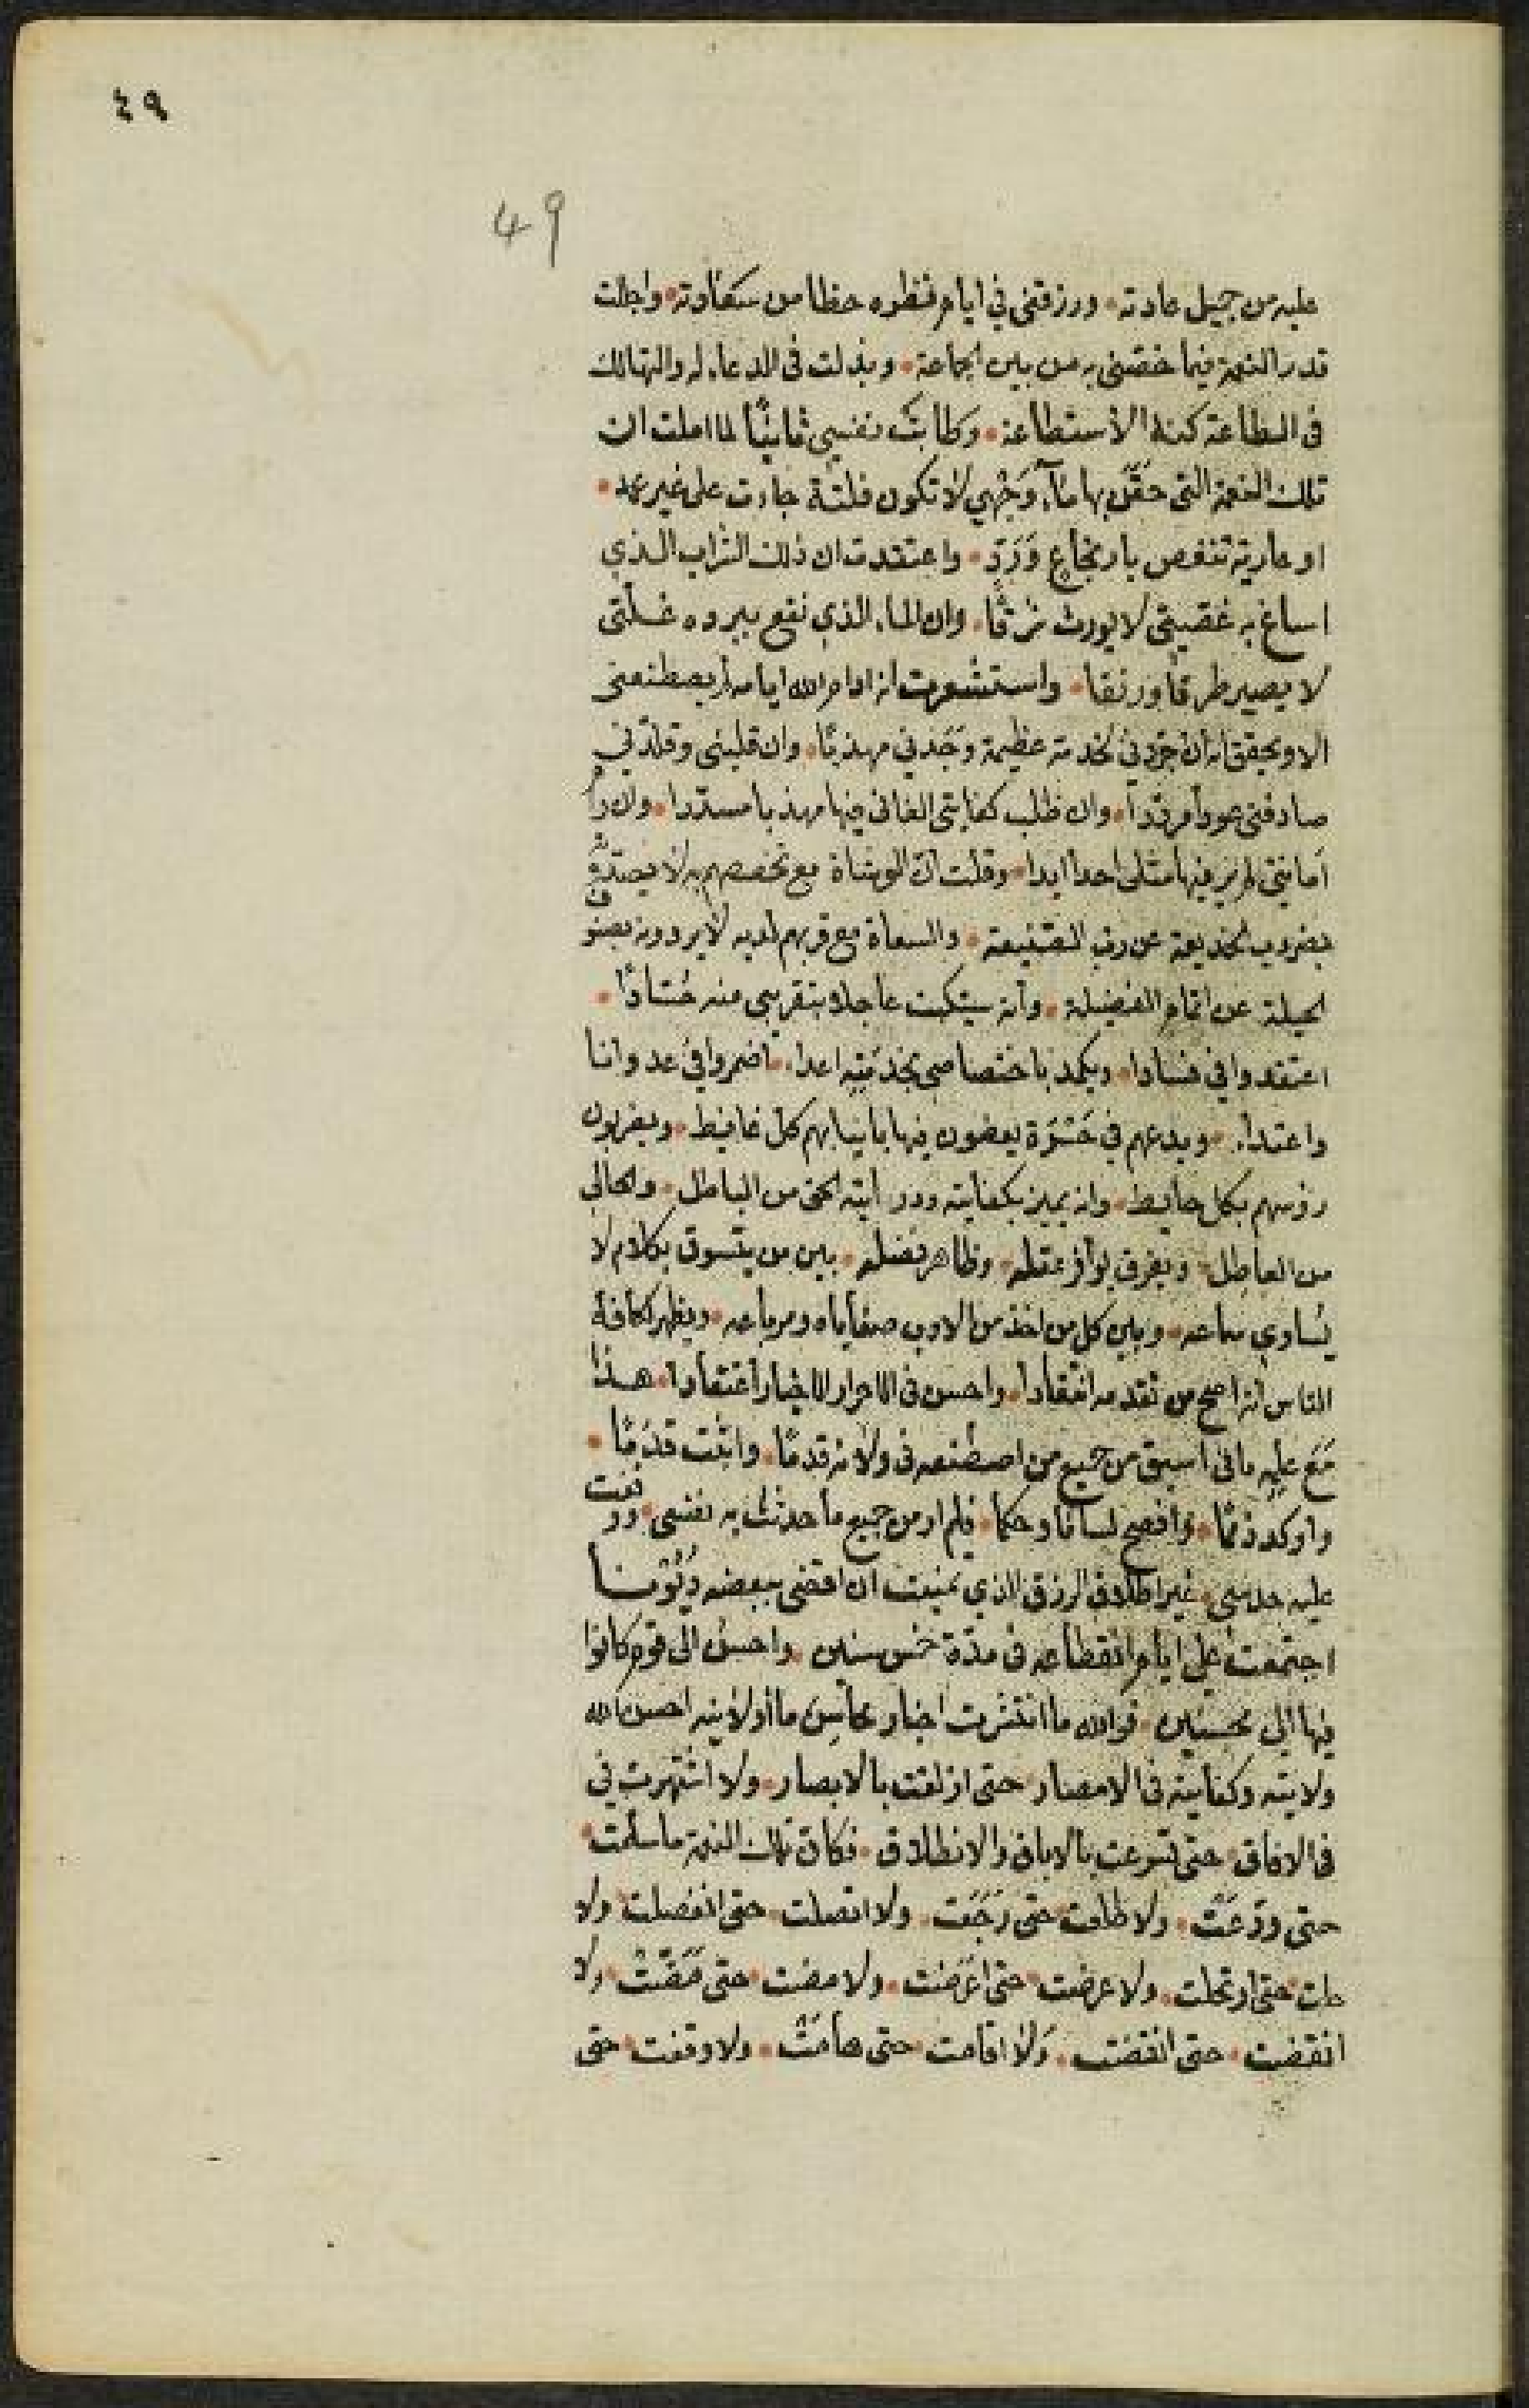 ٤٩
49
عليه من جميل عادته • ورزقتني في ايام فنظره حظا من سعادته • واجللت
قدر النعمة فيما خصصني به من بين الجماعة • وبذلت في الدعاء له والتهالك
في الطاعة كنه الاستطاعة • وطابت نفسي ثانيًا لما املت ان
تلك النعمة التي حقن بها ماء وجهي لا تكون فلتة جاءت على غير عمد •
او عارية تنغص بارتجاع وَرَدّ • واعتقدت ان ذلك الشراب الذي
اساغ به غصيتي لا يورث شرقًا • وان الماء الذي نقع ببرده غلتي
لا يصير طرقا ورنقا • واستشعرت انه ادام الله ايامه لم يصطنعني
الا وتحقق انه ان جرّدني لخدمة عظيمة وجدني مهذبًا • وان قلبني وقلدني
صادفني عودا • وان طلب كفايتي الفاني فيها مهذبا مسددا • وان را
امانتي لم ير فيها مثلي احدا ابدا • وقلت ان الوشاة مع تخصصهم به لا يصدّه
بضروب الخديعة عن رب الصنيعة • والسعاة مع قربهم لديه لا يردونه بصنو
الحيلة عن اتمام الفضيلة • وأنه سيكبت عاجلا بتقريبي منه حُسّادًا •
اعتقدوا في فسادا • ويكمد باختصاصي بخدمته اعداء ما ضمروا في عدوانا
واعتداء • ويدعهم في حَسْرَة يعضون فيها بانيابهم كل غائيظ • ويضربون
رؤسهم بكل حايط • وانه يميز بكفايته ودرايته الحق من الباطل • والحالي
من العاطل • ويفرق بوافر عقله • وظاهر فضله • بين من يتسوق بكلام لا
يُساوي سماعه • وبين كل من اخذ من الادب صفاياه ومرباعه • ويظهر لكافة
الناس انه اصح من تقدمه انتقادا • واحسن في الاحرار الاخيار اعتقادا • هذا
مع علمه باني اسبق من جميع من اصطنعه في ولائه قدمًا • واثبت قدمًا •
واوكد ذممًا • وافصح لسانا وحكما • فلم ار من جميع ما حدثت به نفسي • ووقفت
عليه حدسي • غير اطلاق الرزق الذي تمنيت ان اقضي ببعضه ديُوْنـا
اجتمعت علي ايام انقطاعه في مدّة خمس سنين • واحسن الى قوم كانوا
فيها الي محسنين • فوالله ما انتشرت اخبار محاسن ما اولانيه احسن الله
ولايته وكفايته في الامصار • حتى ازلقت بالابصار • ولا اشتهرت في
في الافاق • حتى تسرعت بالاباق والانطلاق • فكان تلك النعمة ما سلمت •
حتى ودّعَتْ • ولا طافت حتى رَجَعَت • ولا اتصلت • حتى انفصلت • ولا
حلت • حتى ارتحلت • ولا عرضت • حتى اعرضت • ولا مضت • حتى مَضّتْ • ولا
انقضت • حتى انقضت • ولا اقامت • حتى هامَتْ • ولا وقفت • حتى